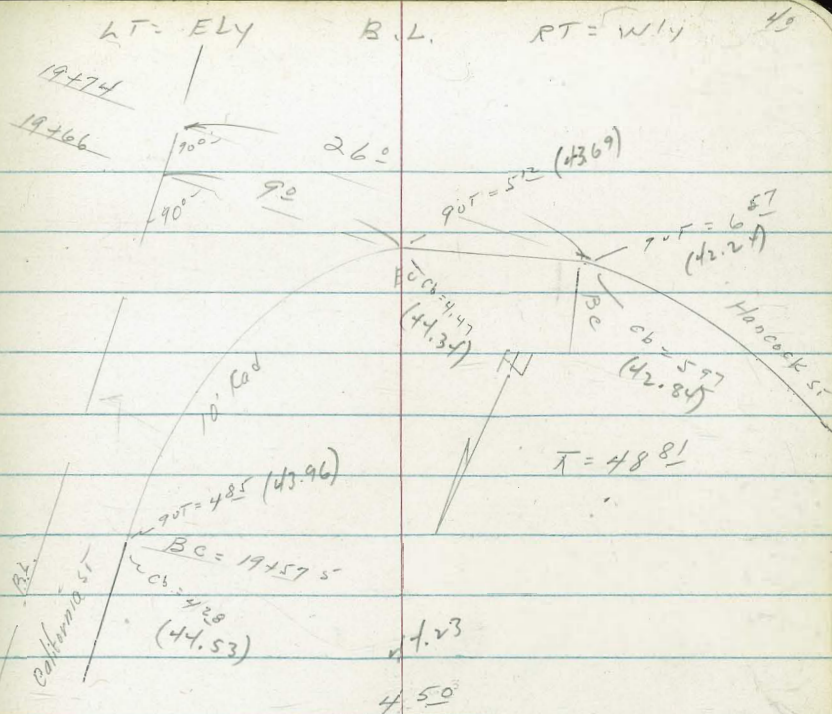 40
LT = ELY B.L. RT = W'ly
19+74
19+66
90°
26 0
90°
9 0
gut = 5 12 (43.69)
gut = 6 57
(42.24)
EC
Cb = 4.47
(44.34)
BC
Cb = 5 97
(42.84)
Hancock St
10' Rad
π = 48 81
gut = 4 85 (43.96)
BC = 19+57 5
Cb = 4 28
(44.53)
B.L.
California St
4.23
4 50